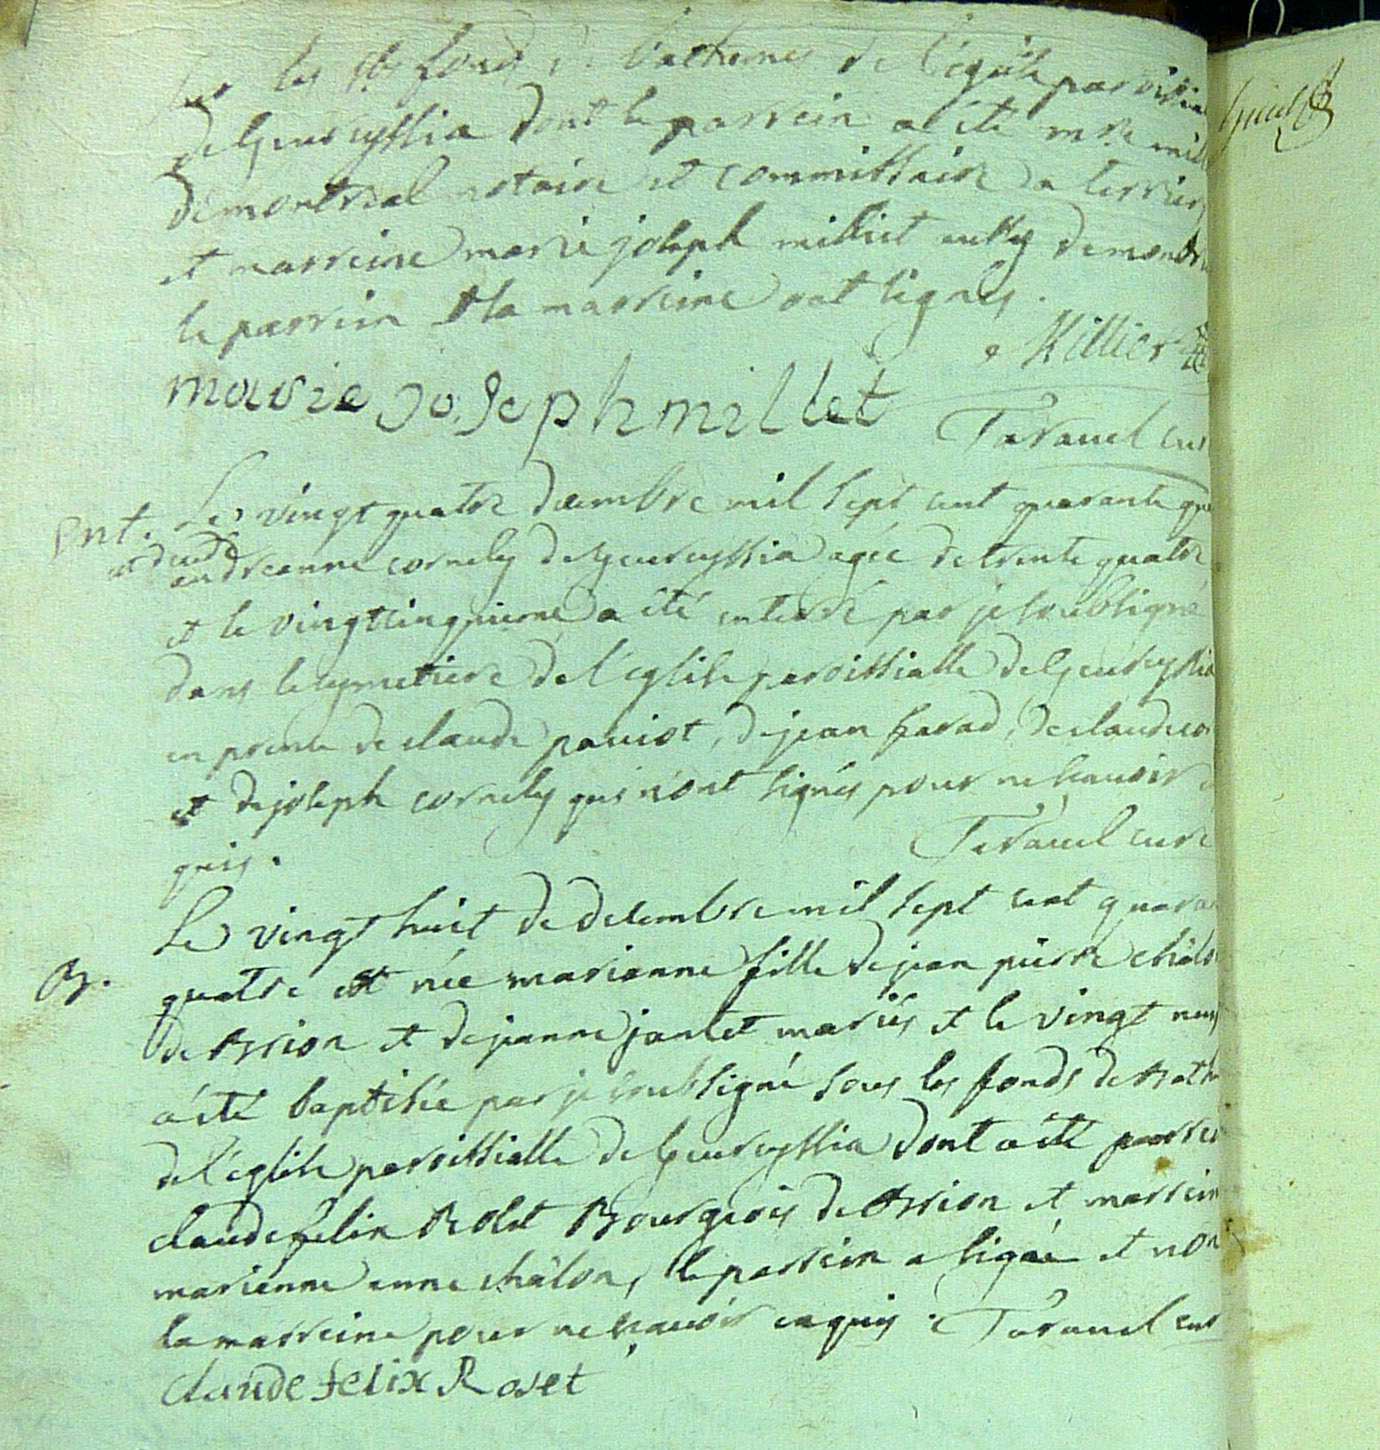 sur les st fonds de bathemes de l'eglise paroissia
de Geureyssia dont le parrein a été mre mill
de montreal notaire et commissaire a terrier
et marreine marie joseph milliet aussy de mon
le parrein et la marreine ont signes.
Millier
marie Joseph millet
Taravel cur
Ent. Le vingt quatre decembre mil sept cent quarante qua
est decede
andreanne cornely de Geureyssia agée de trente quatre
et le vingt cinquieme a été enterré par je soubsigné
dans le cymetiere de l'eglise paroissialle de Geureyssia
en presence de claude pauiot, de jean favad, de claude co
et de joseph cornely qui n'ont signés pour ne scauoir
quis.
Taravel curé
B. Le vingt huit de decembre mil sept cent quara
quatre est née marianne fille de jean pierre châlo
de Arrion et de jeanne jantet mariés et le vingt neuf
a été baptisée par je soubsigné sous les fonds de bath
de l'eglise paroissialle de Geureyssia dont a été parrei
claude felix Rolet Bourgeois de Arrion et marrein
marianne anne châlon, le parrein a signé et non
la marreine pour ne scauoir enquis. Taravel cur
claude felix Roset